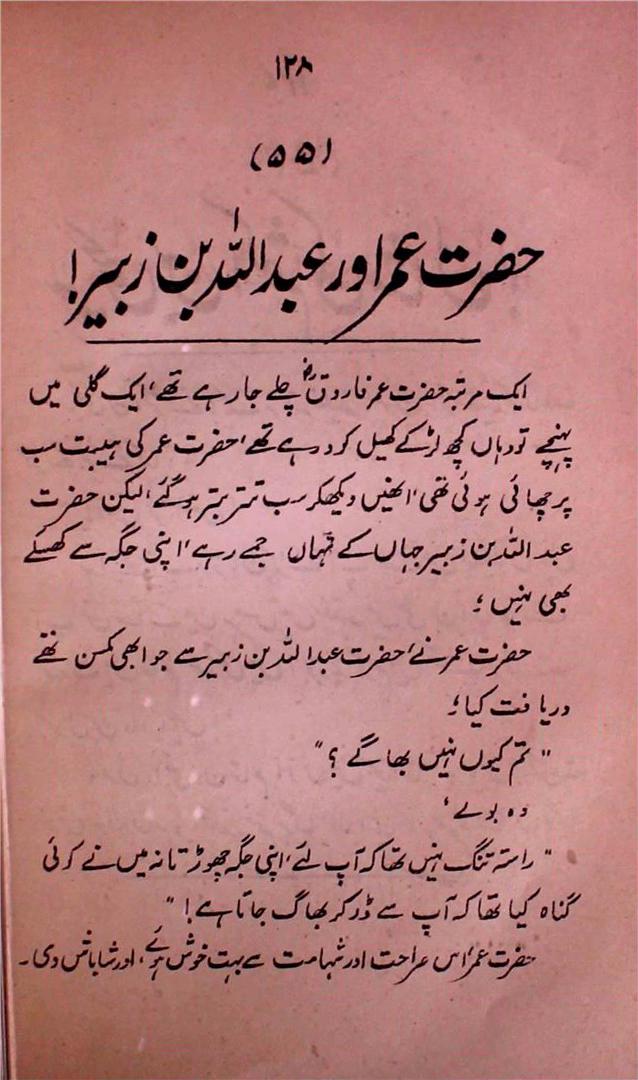 ۱۲۸
(۵۵)
حضرت عمر اور عبد اللہ بن زبیر!
ایک مرتبہ حضرت عمر فاروقؓ چلے جا رہے تھے، ایک گلی میں
پہنچے تو وہاں کچھ لڑکے کھیل کود رہے تھے، حضرت عمر کی ہیبت سب
پر چھائی ہوئی تھی، انھیں دیکھکر سب تتر بتر ہو گئے، لیکن حضرت
عبد اللہ بن زبیر جہاں کے تہاں جمے رہے، اپنی جگہ سے کھسکے
بھی نہیں؛
حضرت عمر نے، حضرت عبد اللہ بن زبیر سے جو ابھی کمسن تھے
دریافت کیا؛
"تم کیوں نہیں بھاگے؟"
وہ بولے،
"راستہ تنگ نہیں تھا کہ آپ لئے، اپنی جگہ چھوڑتا نہ میں نے کوئی
گناہ کیا تھا کہ آپ سے ڈر کر بھاگ جاتا ہے!"
حضرت عمر اس صراحت اور شہامت سے بہت خوش ہوئے، اور شاباش دی۔